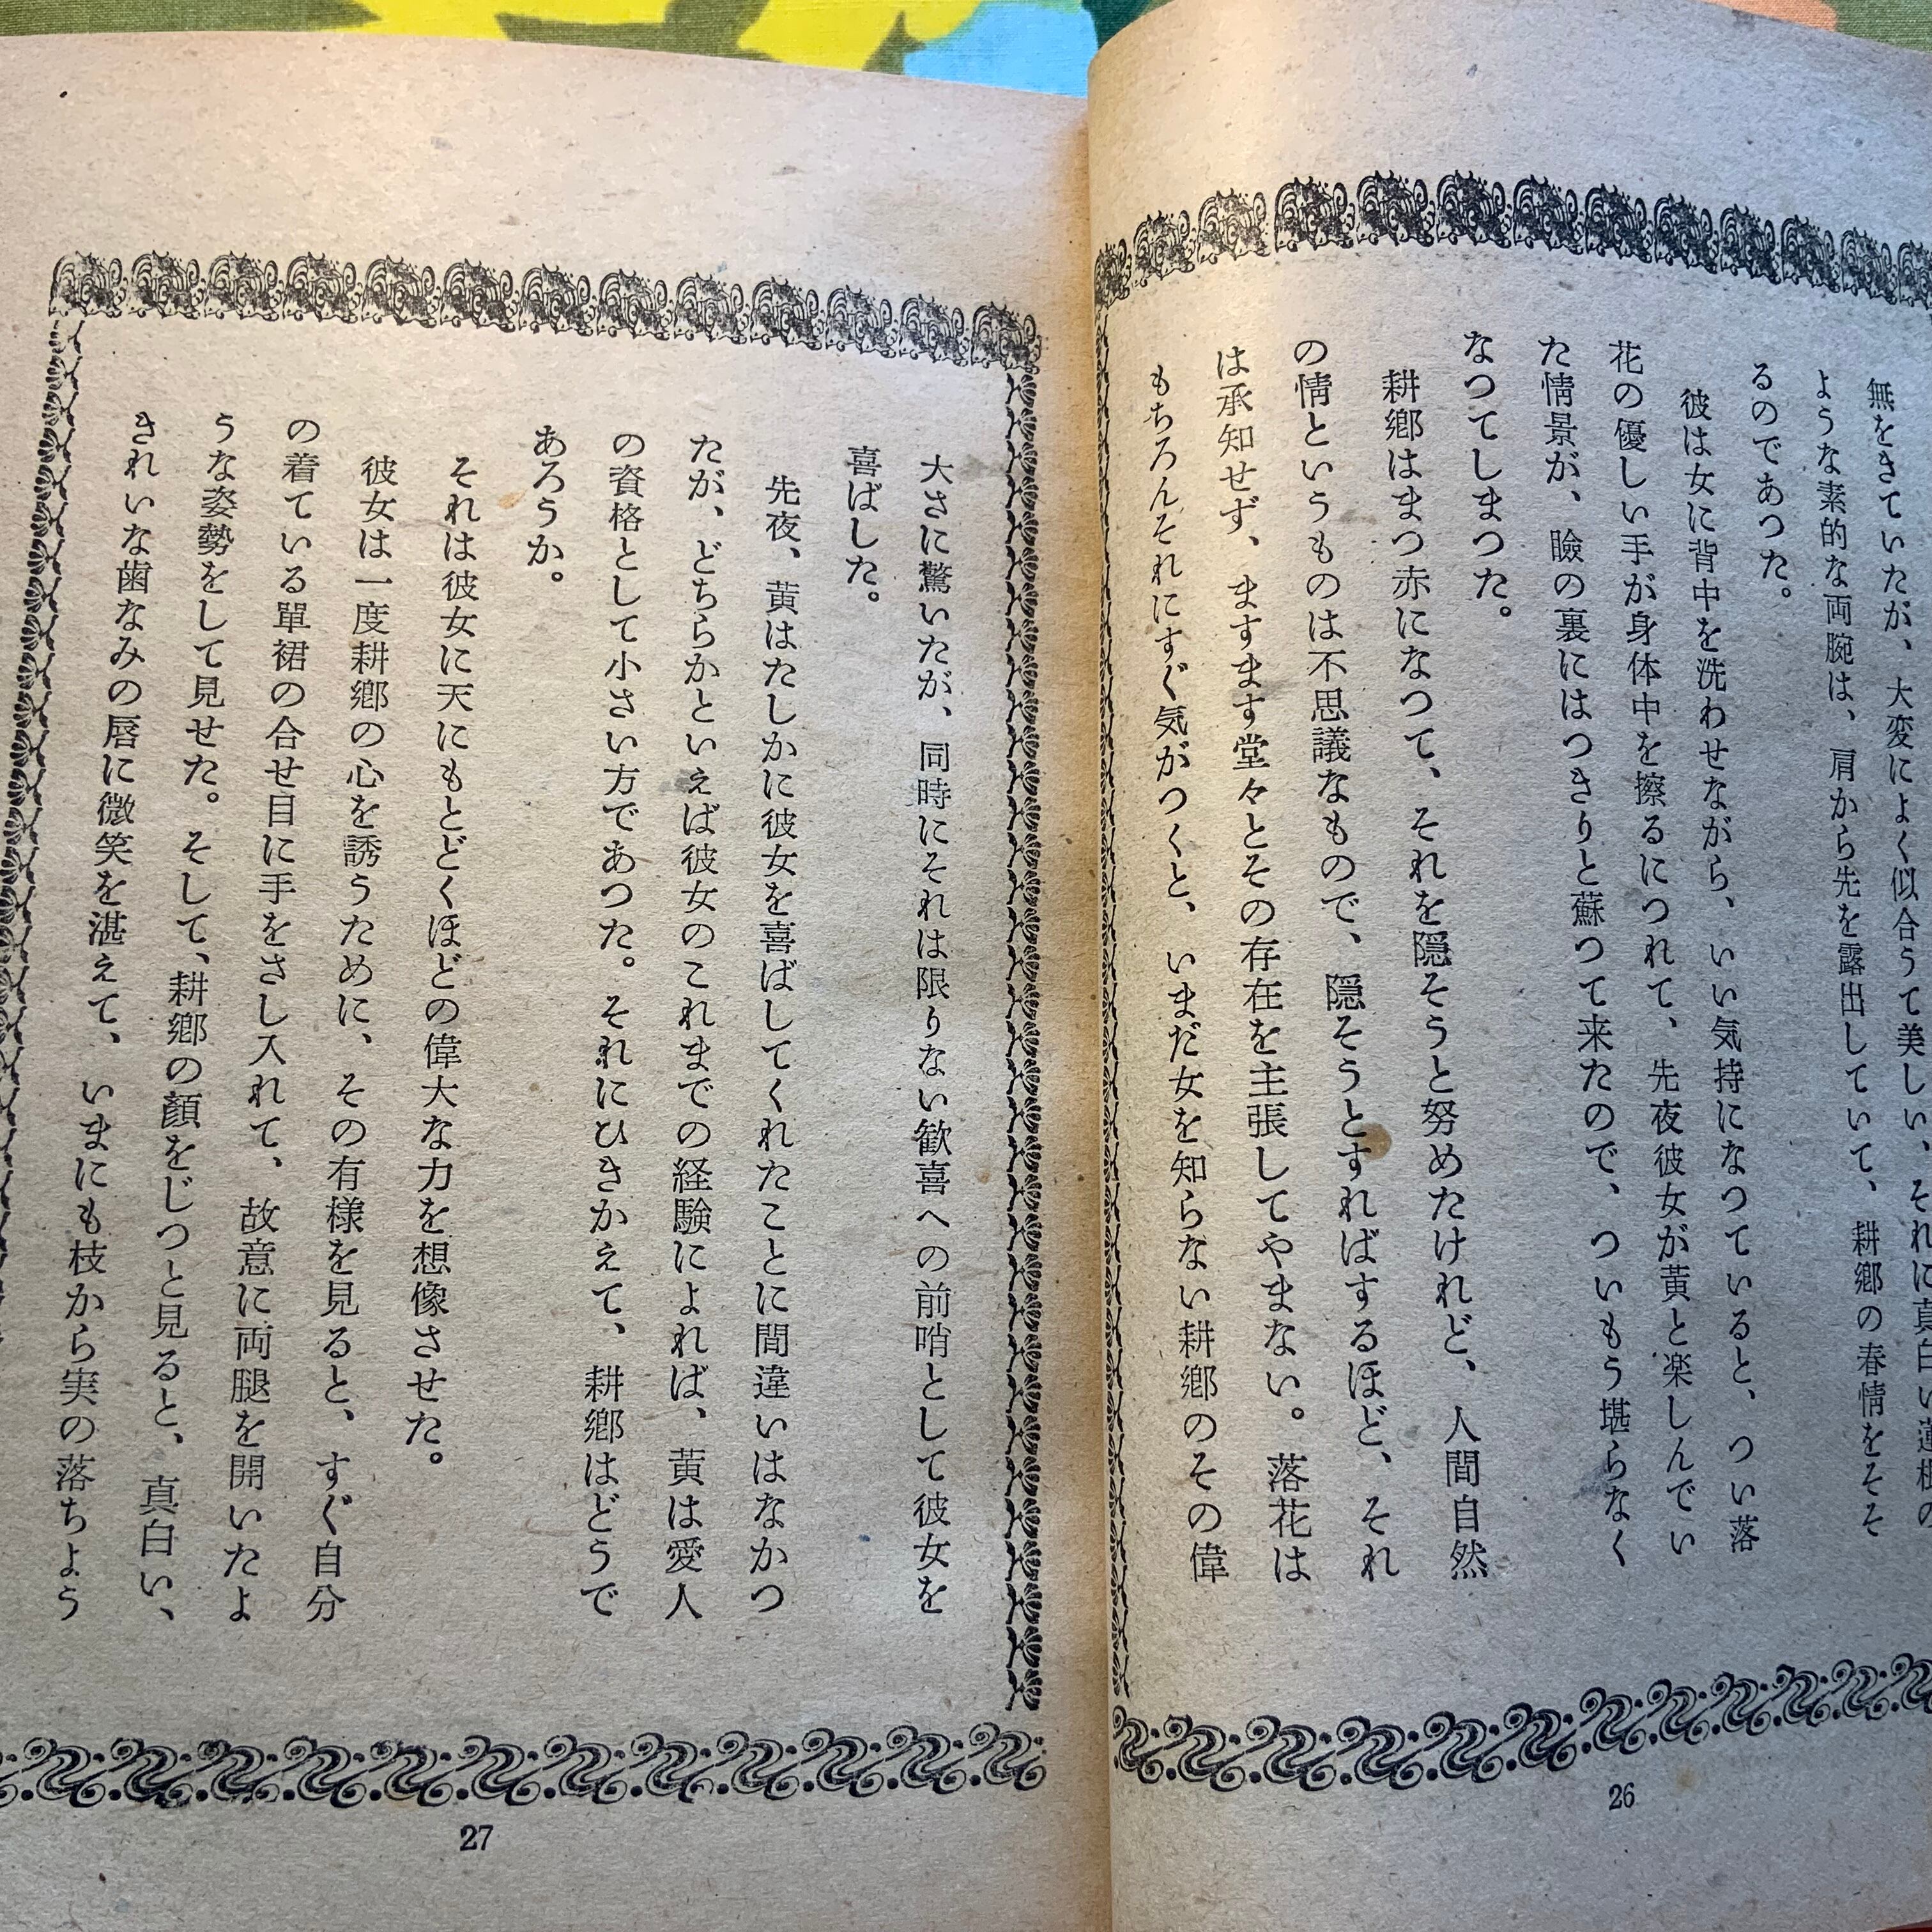 無をきていたが、大変によく似合うて美しい、それに真白い蓮根の
ような素的な両腕は、肩から先を露出していて、耕鄕の春情をそそ
るのであつた。
彼は女に背中を洗わせながら、いい気持になつていると、つい落
花の優しい手が身体中を擦るにつれて、先夜彼女が黄と楽しんでい
た情景が、瞼の裏にはつきりと蘇つて来たので、ついもう堪らなく
なつてしまつた。
耕鄕はまつ赤になつて、それを隠そうと努めたけれど、人間自然
の情というものは不思議なもので、隠そうとすればするほど、それ
は承知せず、ますます堂々とその存在を主張してやまない。落花は
もちろんそれにすぐ気がつくと、いまだ女を知らない耕鄕のその偉
26
大さに驚いたが、同時にそれは限りない歓喜への前哨として彼女を
喜ばした。
先夜、黄はたしかに彼女を喜ばしてくれたことに間違いはなかつ
たが、どちらかといえば彼女のこれまでの経験によれば、黄は愛人
の資格として小さい方であつた。それにひきかえて、耕鄕はどうで
あろうか。
それは彼女に天にもとどくほどの偉大な力を想像させた。
彼女は一度耕鄕の心を誘うために、その有様を見ると、すぐ自分
の着ている單裙の合せ目に手をさし入れて、故意に両腿を開いたよ
うな姿勢をして見せた。そして、耕鄕の顏をじつと見ると、真白い、
きれいな歯なみの唇に微笑を湛えて、いまにも枝から実の落ちよう
27